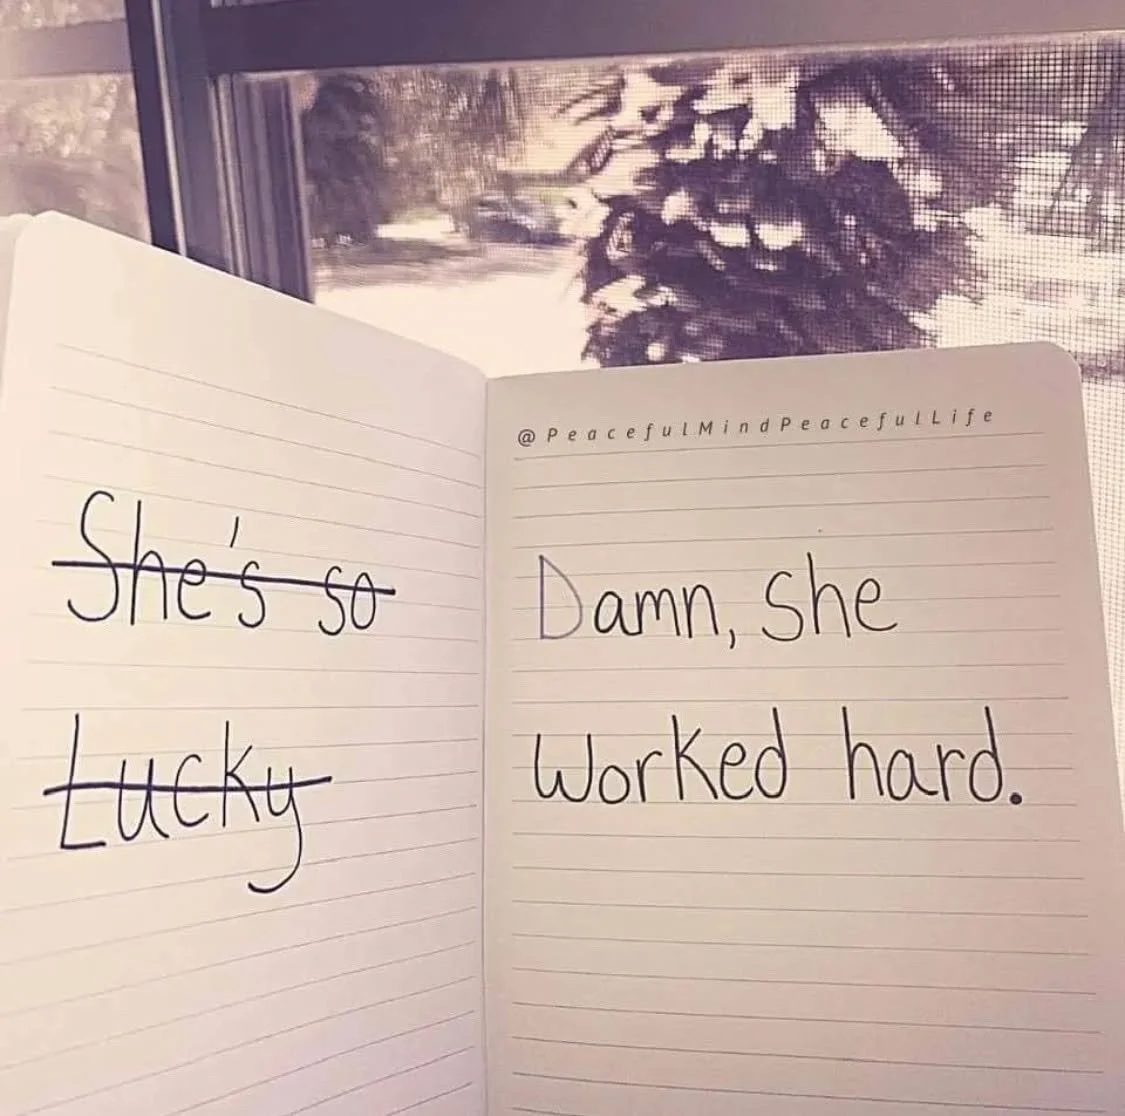 She's so
Lucky
@PeacefulMindPeacefulLife
Damn, she
Worked hard.